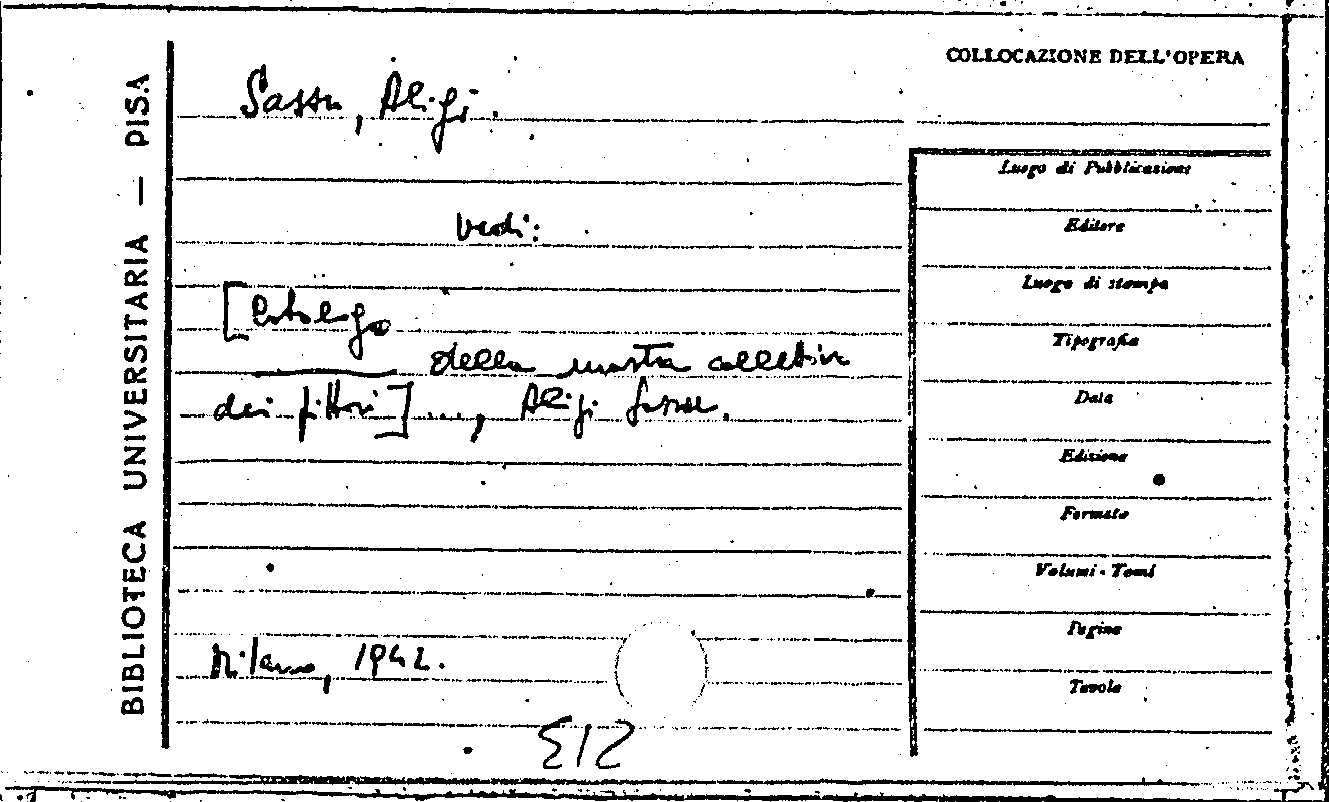 BIBLIOTECA UNIVERSITARIA — PISA
Sassu, Aligi.
vedi:
[Catalogo
della mostra collettiva
dei pittori] ...., Aligi Sassu.
Milano, 1942.
COLLOCAZIONE DELL'OPERA
Luogo di Pubblicazione
Editore
Luogo di stampa
Tipografia
Data
Edizione
Formato
Volumi - Tomi
Pagine
Tavole